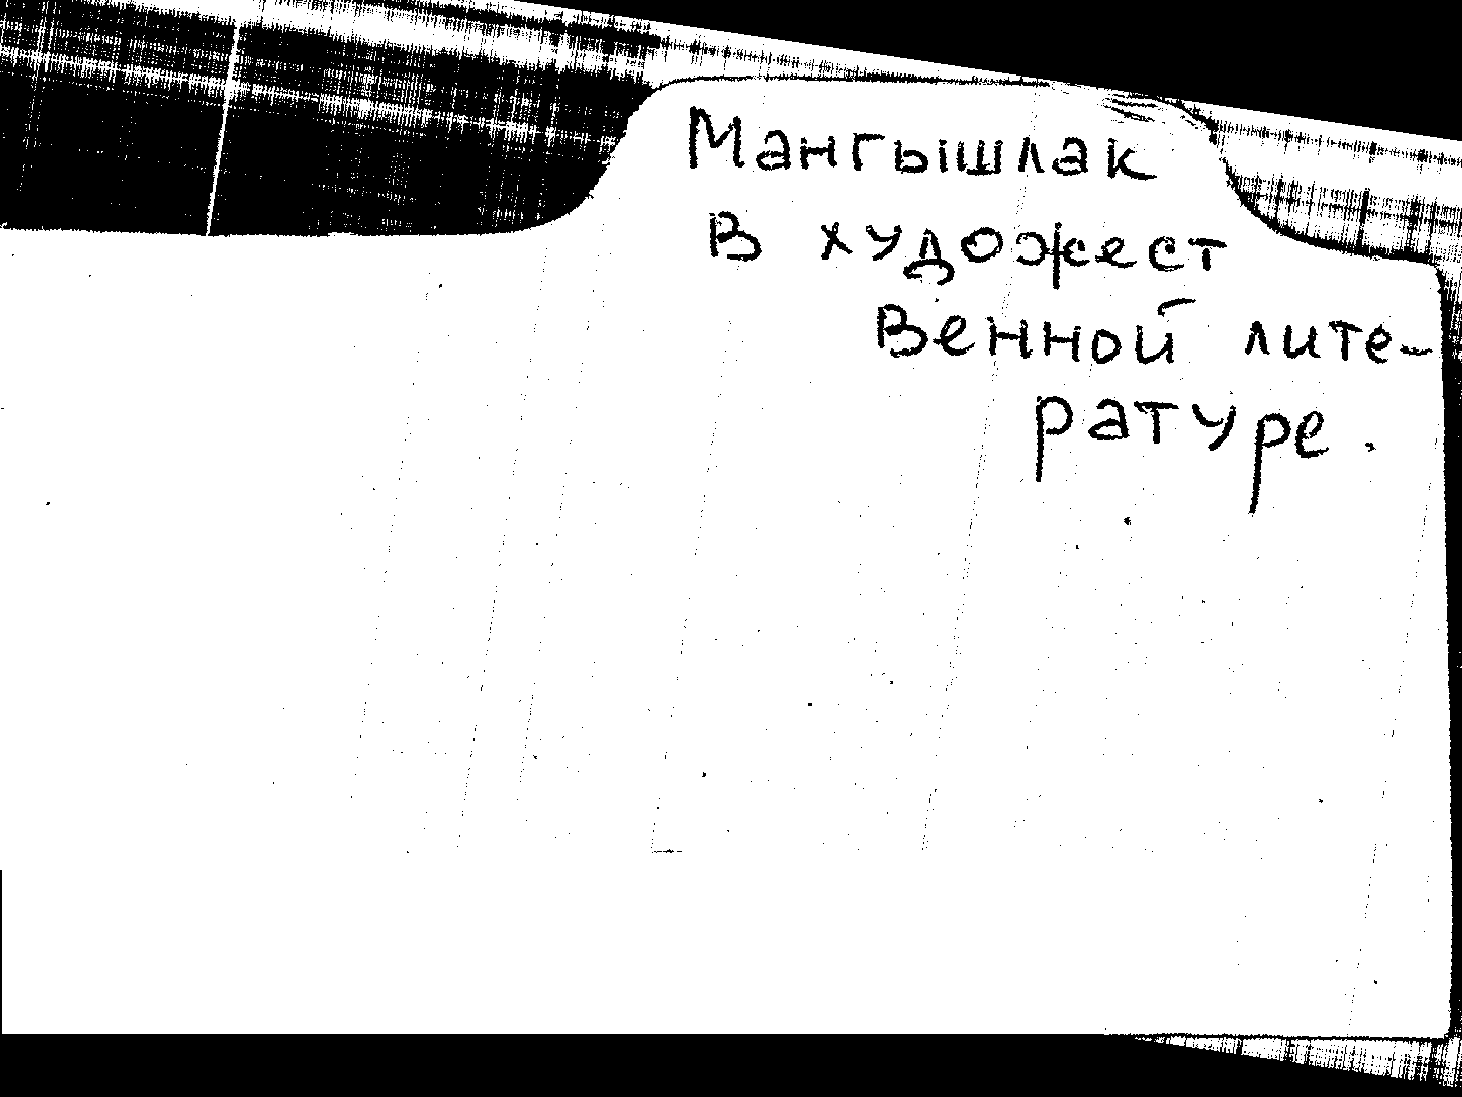 Мангышлак
в художест
венной лите-
ратуре.